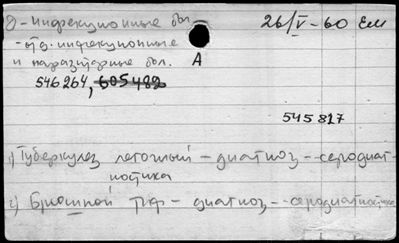 д - инфекционные бол.
26/V-60 Ем
- отд. инфекционные
и паразитарные бол.
A
546264, 605482
545817
1) Туберкулез легочный - диагноз -- серодиаг-
ностика
2) Брюшной тиф - диагноз -- серодиагностика